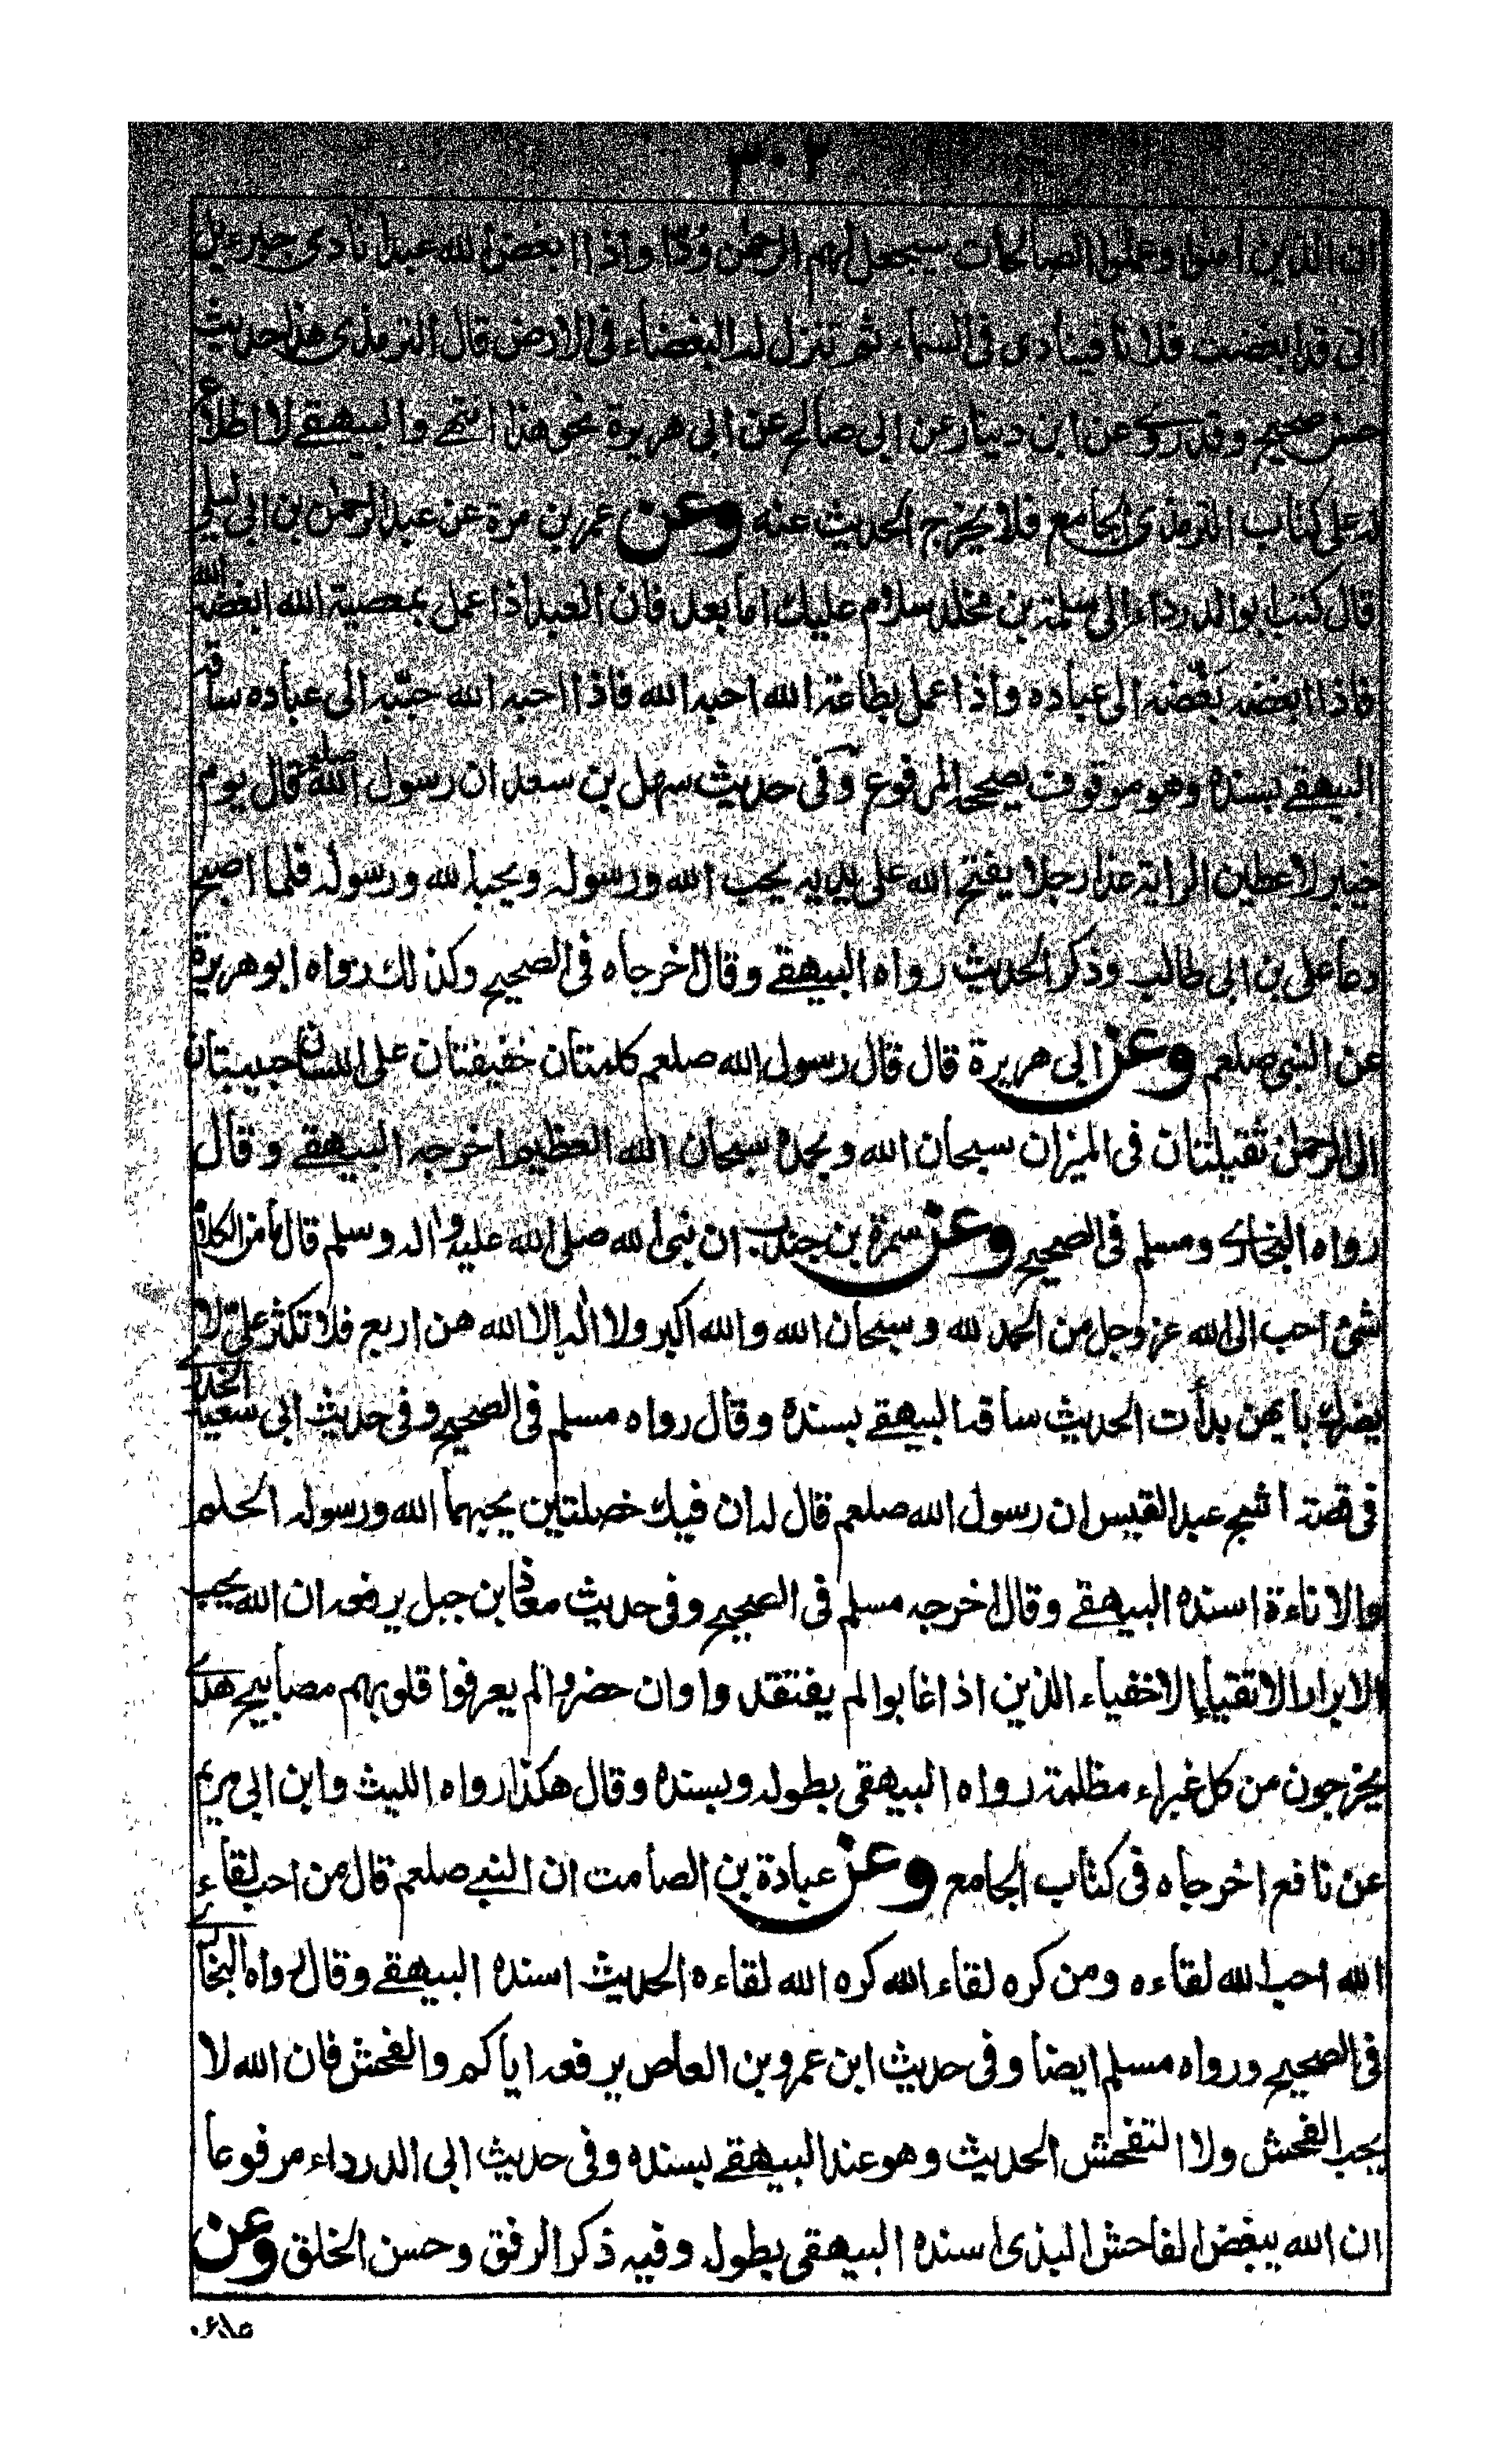 ٣٠٢
ان الذين امنوا وعملوا الصالحات سيجعل لهم الرحمٰن وُدًّا واذا ابغض الله عبدا نادى جبرءيل
انى قد ابغضت فلانا فينادى فى السماء ثم تنزل له البغضاء فى الارض قال الترمذى هذا حديث
حسن صحيح وقد روے عن ابن دينار عن ابى صالح عن ابى هريرة نحو هذا انتهے والبيهقے لا اطلاع
له على كتاب الترمذى الجامع فلا يخرج الحديث عنه وعن عمر بن مرة عن عبد الرحمٰن بن ابى ليلى
قال كتب ابو الدرداء الى سلمة بن مخلد سلام عليك اما بعد فان العبد اذا عمل بمعصية الله ابغضه الله
فاذا ابغضه بغّضه الى عباده واذا عمل بطاعة الله احبه الله فاذا احبه الله حبّبه الى عباده ساقه
البيهقے بسنده وهو موقوف يصححه المرفوع وفى حديث سهل بن سعد ان رسول الله صلعم قال يوم
خيبر لاعطين الراية غدا رجلا يفتح الله على يديه يحب الله ورسوله ويحبه الله ورسوله فلما اصبح
دعا على بن ابى طالب وذكر الحديث رواه البيهقے وقال اخرجاه فى الصحيح وكذلك رواه ابو هريرة
عن النبى صلعم وعن ابى هريرة قال قال رسول الله صلعم كلمتان خفيفتان على اللسان حبيبتان
الى الرحمٰن ثقيلتان فى الميزان سبحان الله وبحمده سبحان الله العظيم اخرجه البيهقے وقال
رواه البخارے ومسلم فى الصحيح وعن سمرة بن جندب ان نبى الله صلى الله عليه واٰله وسلم قال ما من الكلام
شئ احب الى الله عز وجل من الحمد لله وسبحان الله والله اكبر ولا اله الا الله هن اربع فلا تكثر علىّ لا
يضرك بايهن بدأت الحديث ساقه البيهقے بسنده وقال رواه مسلم فى الصحيح وفى حديث ابى سعيد الخدرے
فى قصة اشج عبد القيس ان رسول الله صلعم قال له ان فيك خصلتين يحبهما الله ورسوله الحلم
والاناءة اسنده البيهقے وقال اخرجه مسلم فى الصحيح وفى حديث معاذ بن جبل يرفعه ان الله يحب
الابرار الاتقياء الاخفياء الذين اذا غابوا لم يفتقدوا وان حضروا لم يعرفوا قلوبهم مصابيح هدے
يخرجون من كل غبراء مظلمة رواه البيهقى بطوله وبسنده وقال هكذا رواه الليث وابن ابى مريم
عن نافع اخرجاه فى كتاب الجامع وعن عبادة بن الصامت ان النبے صلعم قال من احب لقاء
الله احب الله لقاءه ومن كره لقاء الله كره الله لقاءه الحديث اسنده البيهقے وقال رواه البخارے
فى الصحيح ورواه مسلم ايضا وفى حديث ابن عمرو بن العاص يرفعه اياكم والفحش فان الله لا
يحب الفحش ولا التفحش الحديث وهو عند البيهقے بسنده وفى حديث ابى الدرداء مرفوعا
ان الله يبغض الفاحش البذى اسنده البيهقى بطوله وفيه ذكر الرفق وحسن الخلق وعن